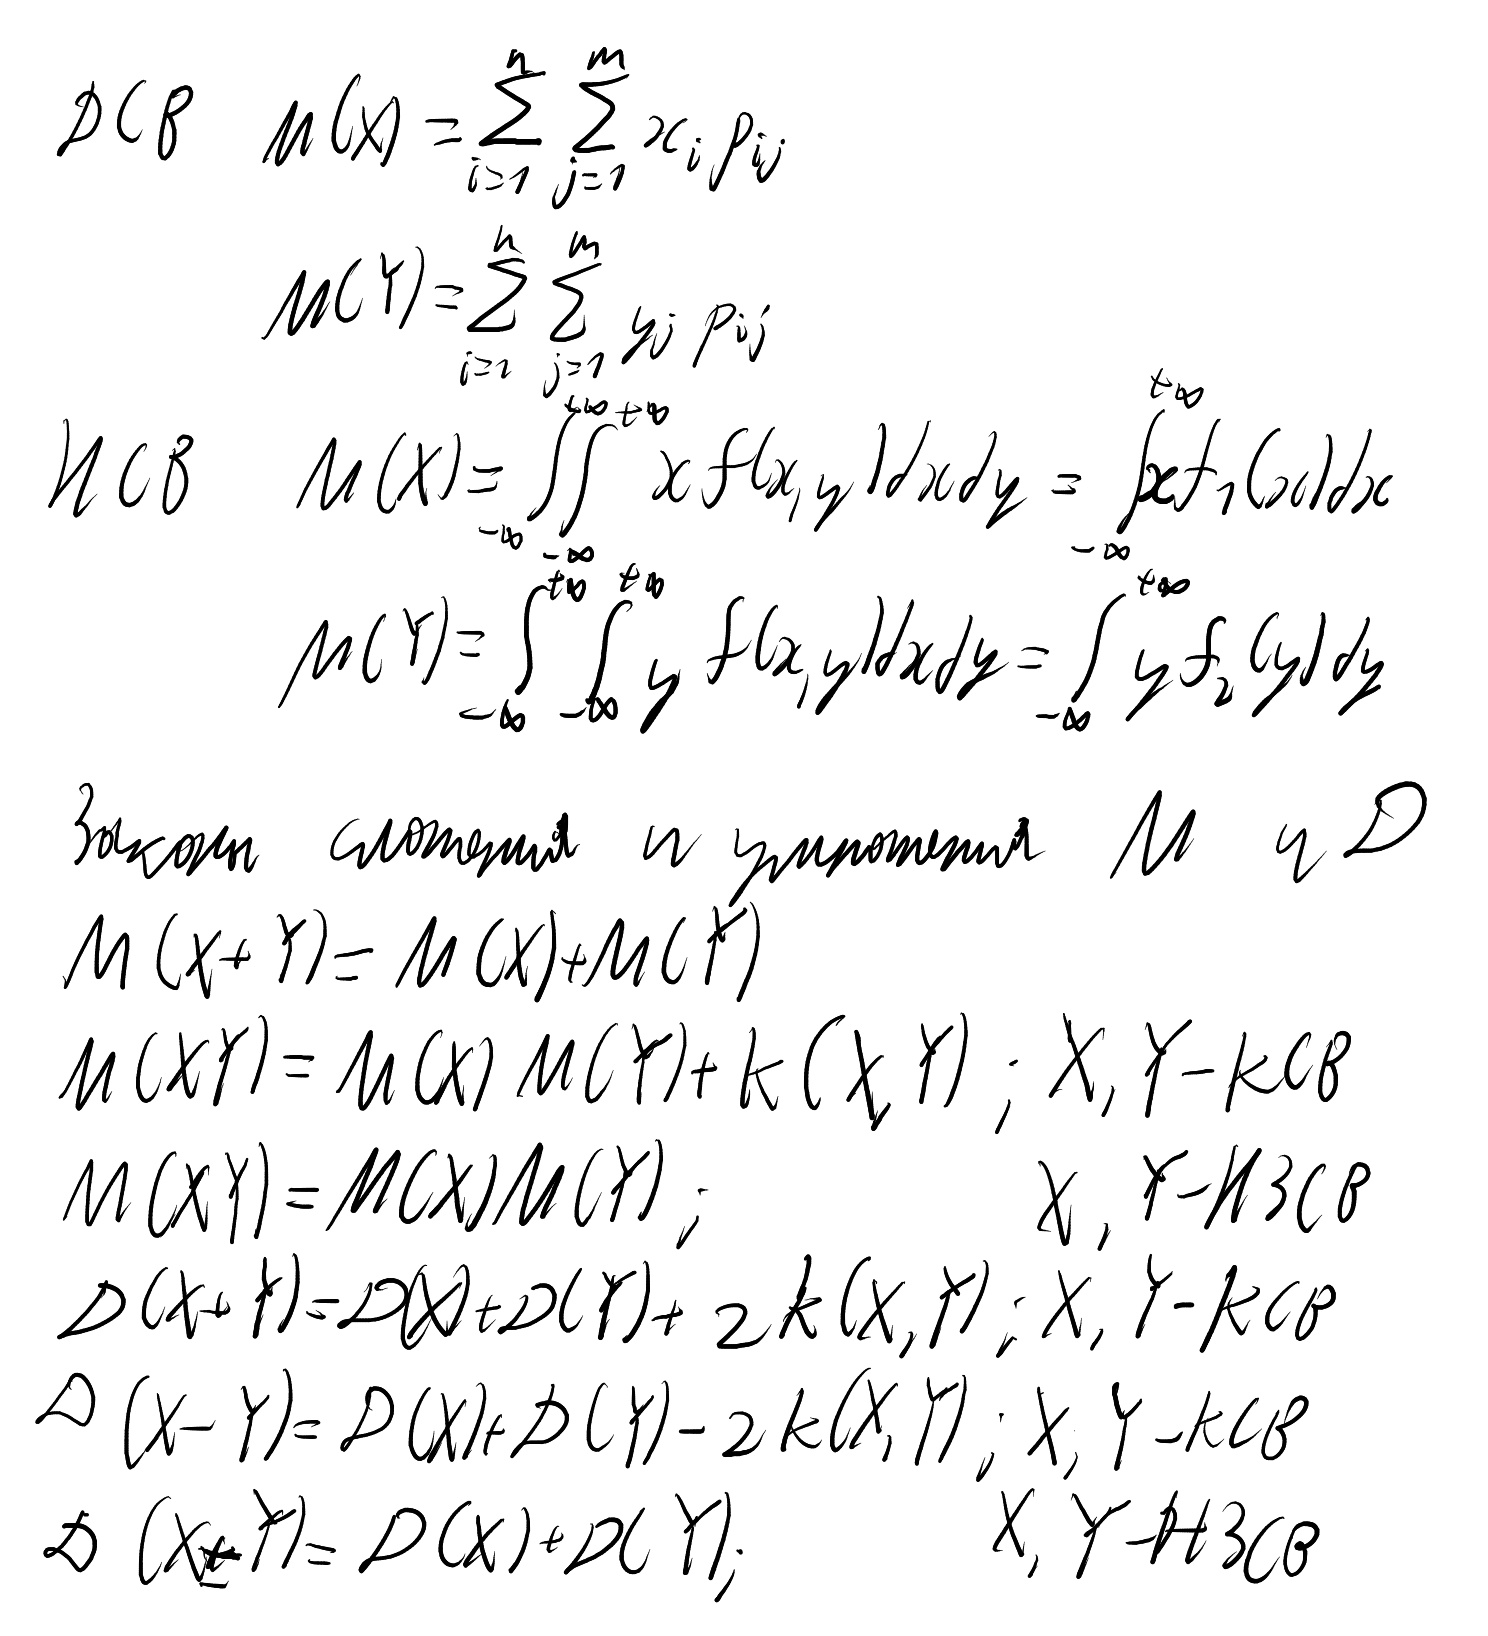 ДСВ M(X) = ∑_{i=1}^{n} ∑_{j=1}^{m} x_i p_{ij}
M(Y) = ∑_{i=1}^{n} ∑_{j=1}^{m} y_j p_{ij}
НСВ M(X) = ∫_{-∞}^{+∞} ∫_{-∞}^{+∞} x f(x,y) dx dy = ∫_{-∞}^{+∞} x f_1(x) dx
M(Y) = ∫_{-∞}^{+∞} ∫_{-∞}^{+∞} y f(x,y) dx dy = ∫_{-∞}^{+∞} y f_2(y) dy
Законы сложения и умножения M и D
M(X+Y) = M(X)+M(Y)
M(XY) = M(X) M(Y) + k(X,Y) ; X, Y - kСВ
M(XY) = M(X) M(Y) ; X, Y - НЗСВ
D(X+Y) = D(X)+D(Y) + 2k(X,Y) ; X, Y - kСВ
D(X-Y) = D(X)+D(Y) - 2k(X,Y) ; X, Y - kСВ
D(X±Y) = D(X)+D(Y) ; X, Y - НЗСВ